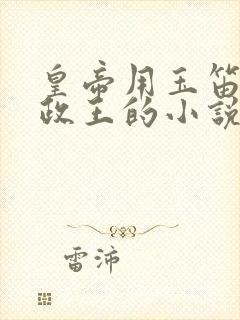 皇帝用玉笛
政王的小說
雷沛